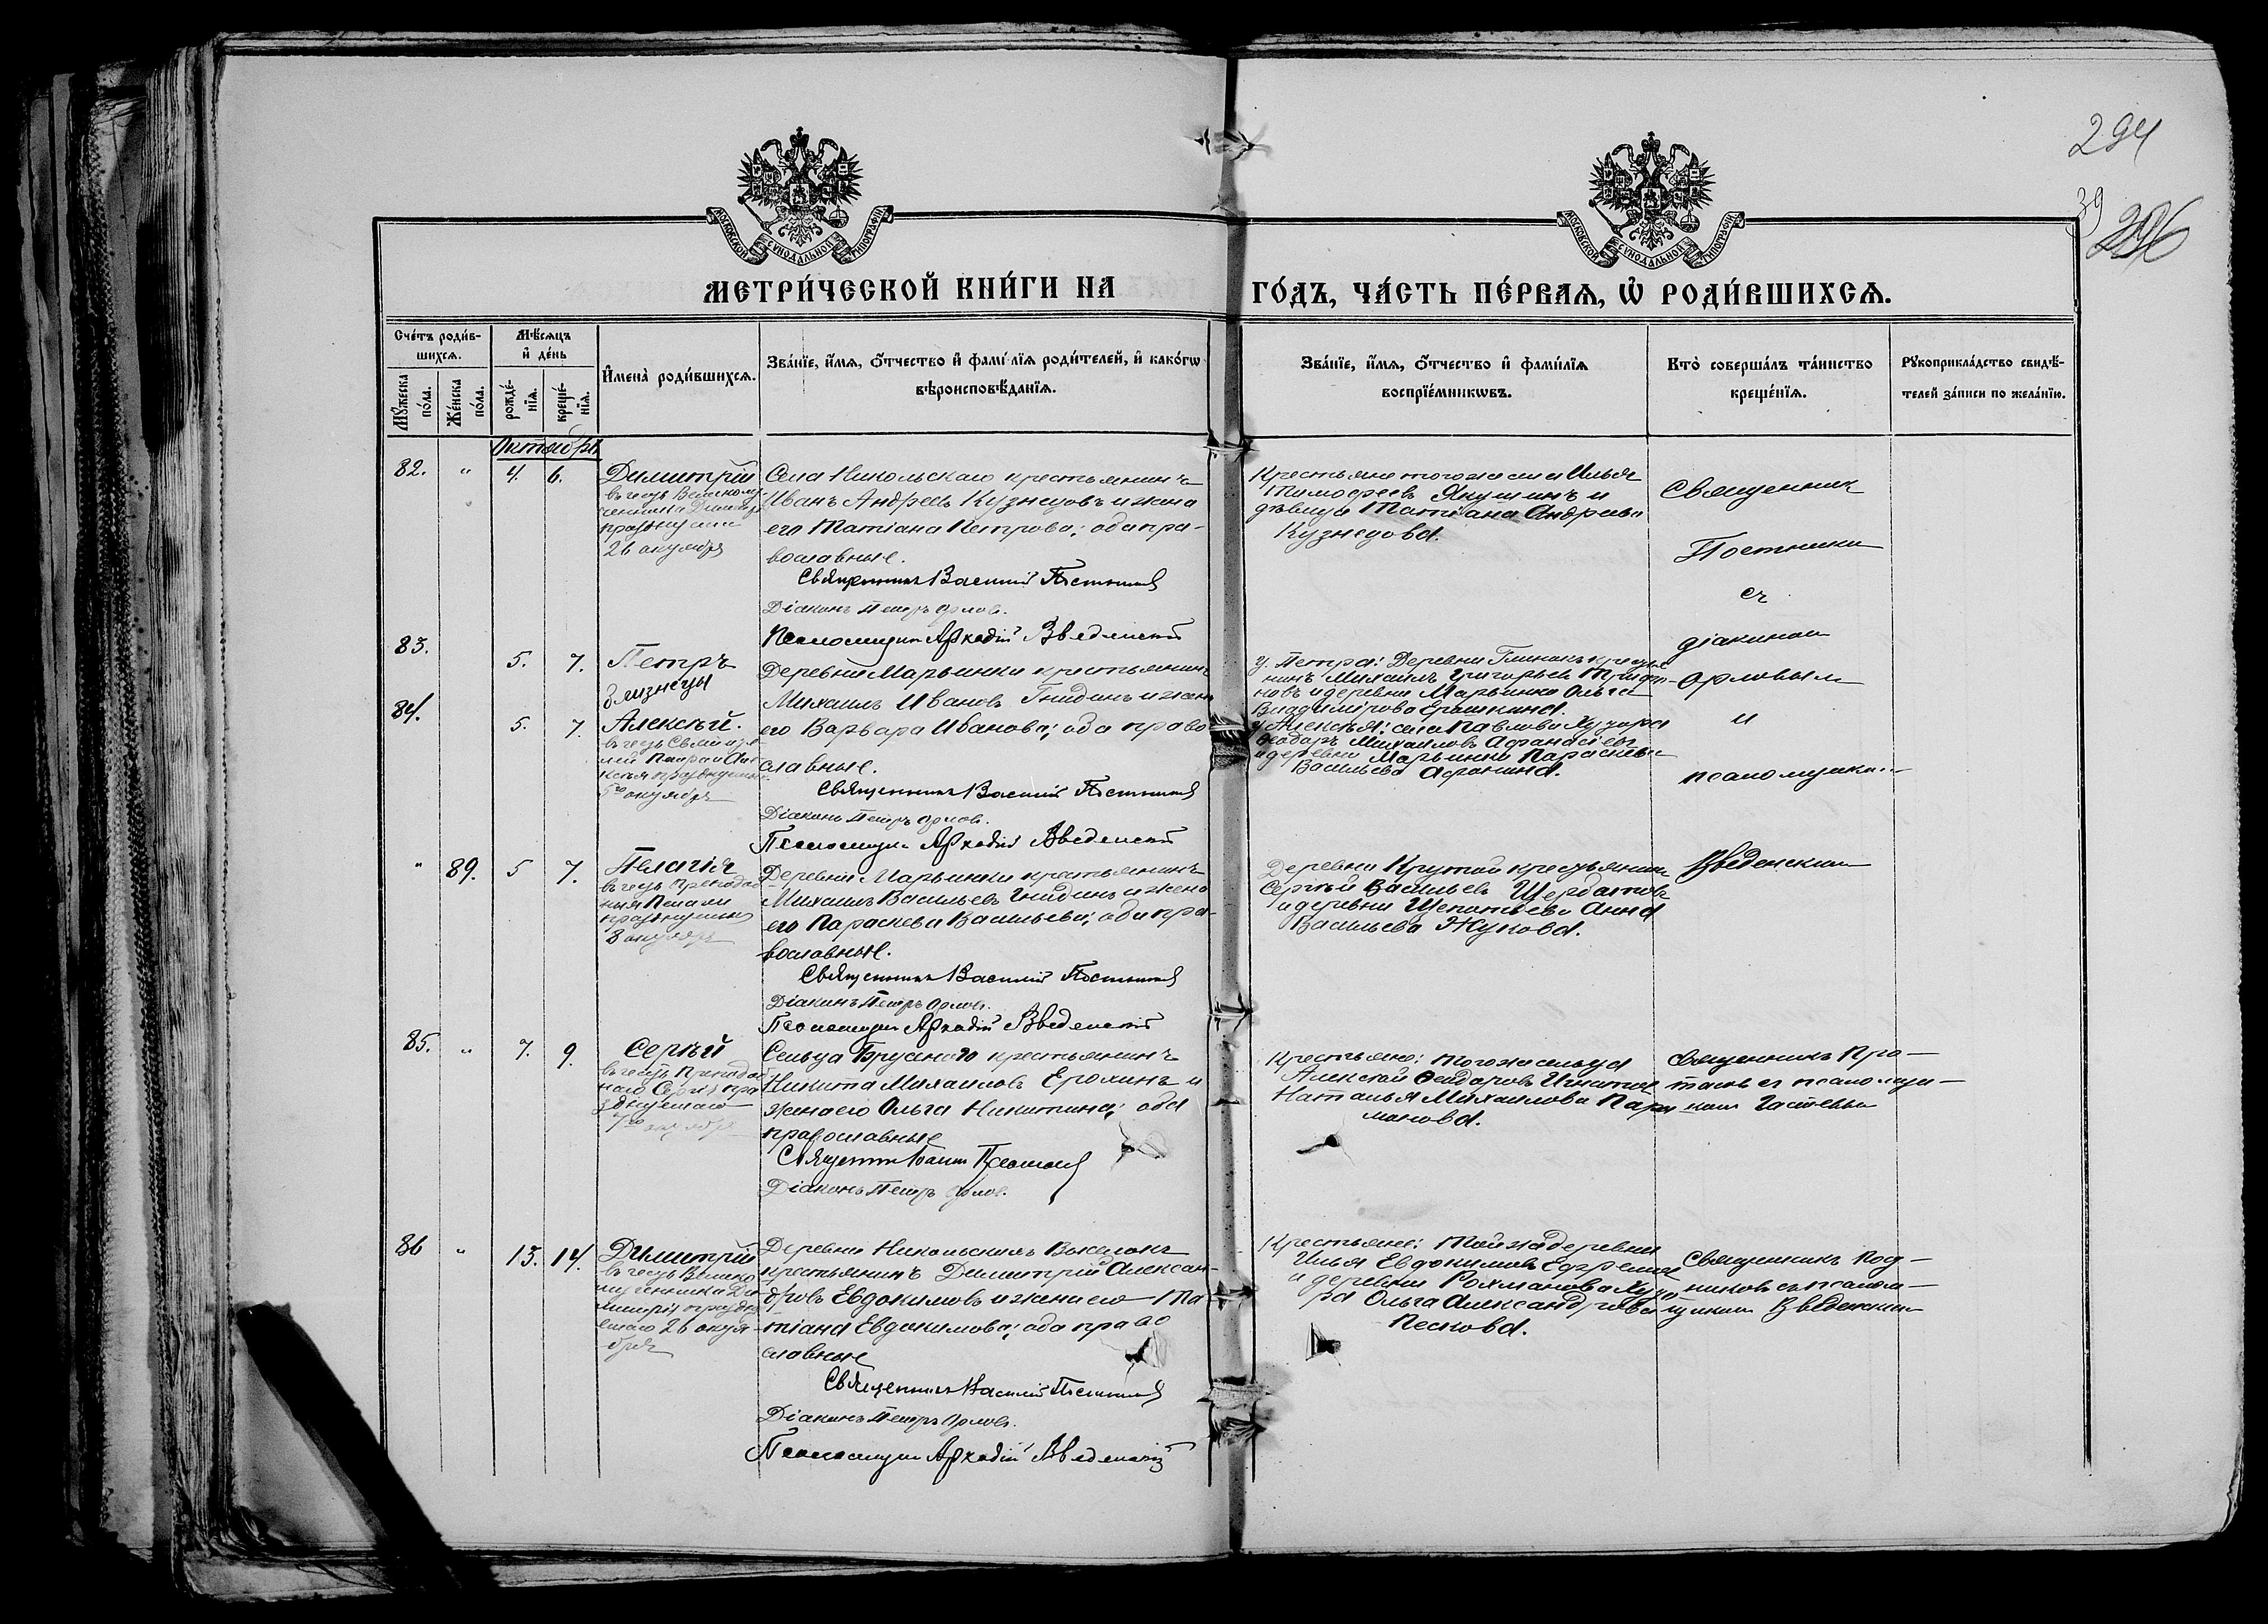 294
39
296
МОСКОВСКОЙ СѴНОДАЛЬНОЙ ТИПОГРАФІИ
МОСКОВСКОЙ СѴНОДАЛЬНОЙ ТИПОГРАФІИ
МЕТРИ́ЧЕСКОЙ КНИ́ГИ НА ГО́ДЪ, ЧА́СТЬ ПЕ́РВАѦ, Ѡ҆ РОДИ́ВШИХСѦ.
Сче́тъ роди́в-
шихсѧ.
Мꙋ́жеска по́ла.
Же́нска по́ла.
Мѣ́сѧцъ
и҆ де́нь
рожде́-
нїѧ.
креще́-
нїѧ.
И҆мена̀ роди́вшихсѧ.
Зва́нїе, и҆́мѧ, ѻ҆́тчество и҆ фами́лїѧ роди́телей, и҆ како́гѡ
вѣроисповѣ́данїѧ.
Зва́нїе, и҆́мѧ, ѻ҆́тчество и҆ фами́лїѧ
воспрїе́мникѡвъ.
Кто̀ соверша́лъ та́инство
креще́нїѧ.
Рꙋкоприкла́дство свидѣ́-
телей за́писи по жела́нїю.
Октябрь
82. " 4. 6.
Димитрій
въ честь Великому-
ченика Димитр
празднуемаго
26 октября
Села Никольскаго крестьянинъ
Иванъ Андреевъ Кузнецовъ и жена
его Татіана Петрова; оба пра-
вославные.
Священникъ Василій Постников
Діаконъ Петръ Орловъ.
Псаломщикъ Аркадій Введенскій
Крестьяне того же села Илья
Тимофеевъ Якушинъ и
дѣвица Татіана Андреева
Кузнецова.
Священник
Постники
съ
діакином
Орловым
и
псаломщико
Введенским
83. 5. 7.
Петръ
близнецы
84. 5. 7.
Алексѣй.
5го октября
Деревни Марьинки крестьянинъ
Михаилъ Ивановъ Гнидинъ и жена
его Варвара Иванова; оба право
славные.
Священникъ Василій Постников
Діаконъ Петръ Орловъ.
Псаломщикъ Аркадій Введенскій
у Петра: Деревни Глинокъ крестья
нинъ Михаилъ Григорьевъ Трифо-
новъ и деревни Марьинки Ольга
Владимірова Ерошкина.
у Алексѣя: села Павлова
Ѳеодоръ Михаиловъ Афанасьевъ
и деревни Марьинки Параскева
Васильева Афонина.
" 89. 5 7.
Пелагія
въ честь Преподоб
ныя Пелагіи
празднуемыя
8 октября
Деревни Марьинки крестьянинъ
Михаилъ Васильевъ Гнидинъ и жена
его Параскева Васильева; оба пра-
вославные.
Священникъ Василій Постников
Діаконъ Петръ Орловъ.
Псаломщикъ Аркадій Введенскій
Деревни Крутой крестьянин
Сергѣй Васильевъ Щербатовъ
и деревни Щепотьево Анна
Васильева Жукова.
85. " 7. 9.
Сергѣй
въ честь Преподоб
наго Сергія пра
зднуемаго
7го октября
Сельца Бруснаго крестьянинъ
Никита Михаиловъ Ерохинъ и
жена его Ольга Никитина; оба
православные
Священникъ
Діаконъ Петръ Орловъ.
Крестьяне: того же сельца
Алексѣй Ѳеодоровъ Игнатов
Наталья Михаилова Пара
монова.
священникъ Про-
съ псаломщи-
86 " 13. 14.
Димитрій
въ честь Велико
мученика Ди
митрія праздну
емаго 26 октя
бря
Деревни Никольскихъ Выселокъ
крестьянинъ Димитрій Алексан-
дровъ Евдокимовъ и жена его Та
тіана Евдокимова; оба право
славные
Священникъ Василій Постников
Діаконъ Петръ Орловъ.
Псаломщикъ Аркадій Введенскій
Крестьяне: той же деревни
Илья Евдокимовъ Ефремов
и деревни Рохманова
Ольга Александрова
Пескова.
Священникъ
съ псалом-
щиком Введенским